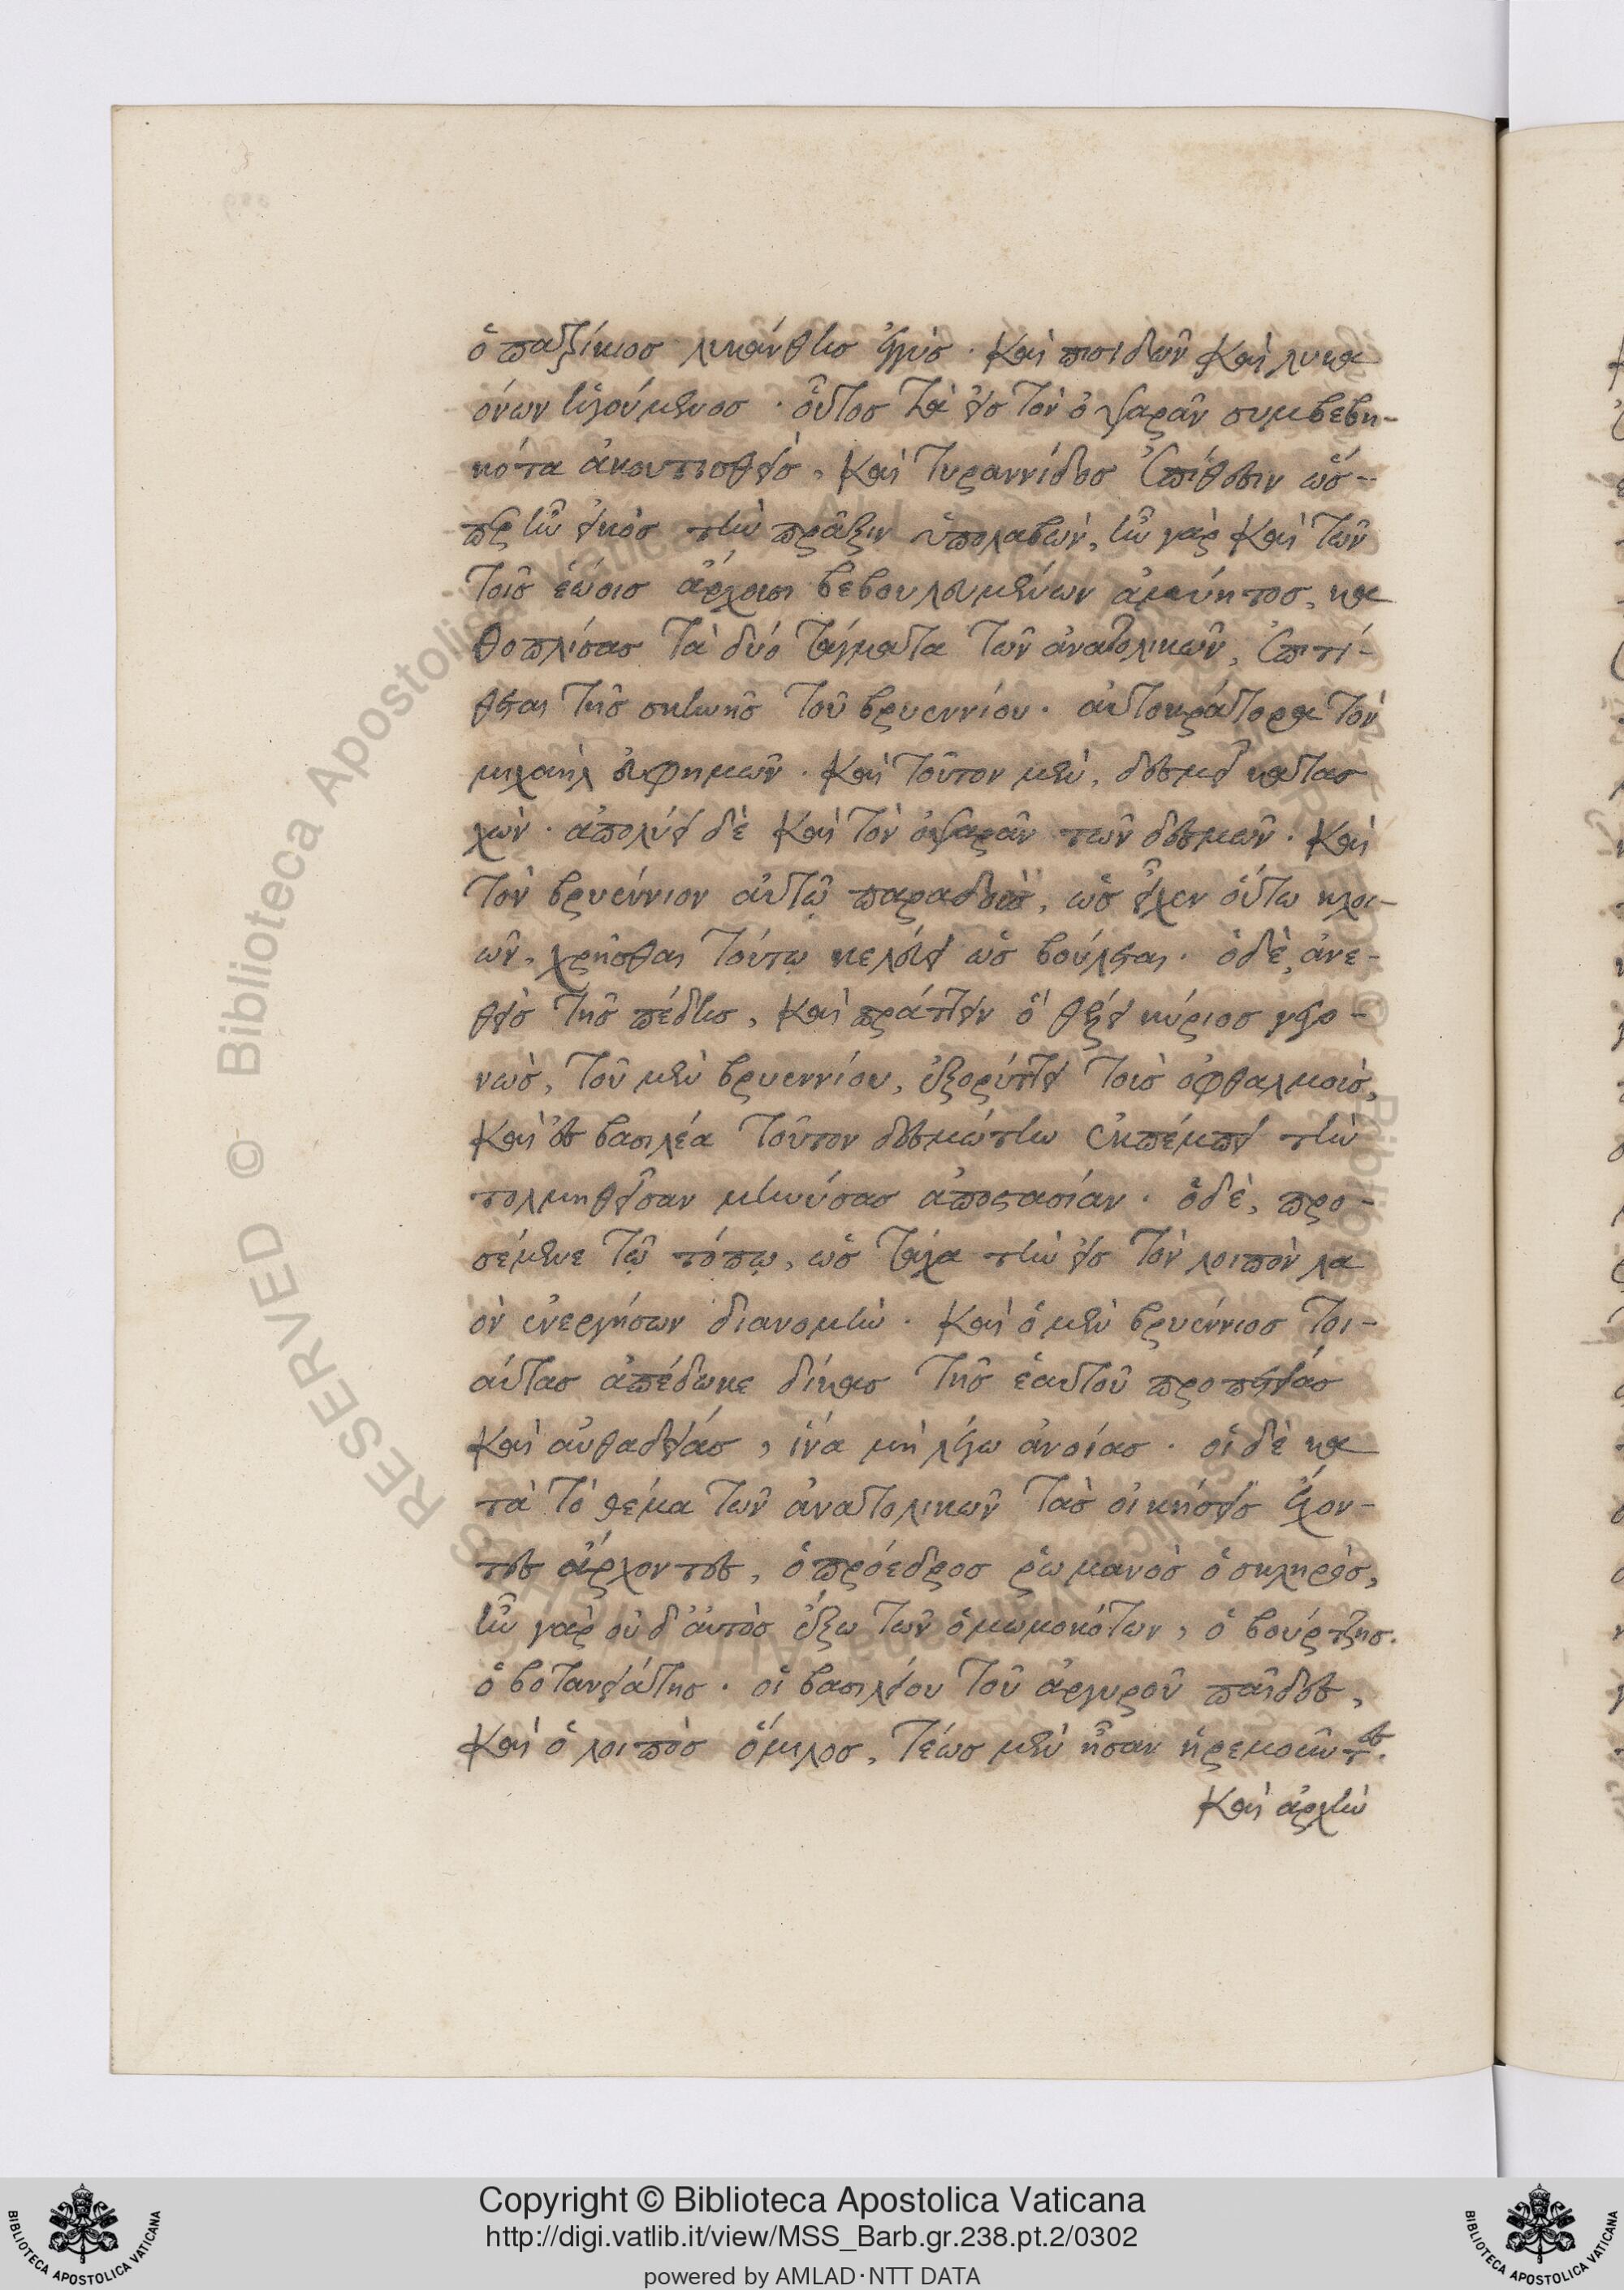 ὁ πατρίκιος λυκάνθης ἐγγύς. καὶ πισιδῶν καὶ λυκα
όνων ἡγούμενος. οὗτος τὰ εἰς τὸν ὀψαρᾶν συμβεβη-
κότα ἀκουτισθεὶς, καὶ τυραννίδος ἐπίθεσιν ὥσ-
περ ἦν εἰκὸς τὴν πρᾶξιν ὑπολαβὼν, ἦν γὰρ καὶ τῶν
τοῖς ἑώοις ἄρχουσι βεβουλευμένων ἀμύητος, κα
θοπλίσας τὰ δύο τάγματα τῶν ἀνατολικῶν, ἐπιτί-
θεται τῆς σκηνῆς τοῦ βρυεννίου. αὐτοκράτορα τὸν
μιχαὴλ εὐφημῶν. καὶ τοῦτον μὲν, δεσμεῖ κατας
χών. ἀπολύει δὲ καὶ τὸν ὀψαρᾶν τῶν δεσμῶν. καὶ
τὸν βρυέννιον αὐτῷ παραδοὺς, ὡς εἶχεν οὕτω κλοι-
ῶν, χρῆσθαι τούτῳ κελεύει ὡς βούλεται. ὁ δὲ, ἀνε-
θεὶς τῆς πέδης, καὶ πράττειν ὃ θέλει κύριος γεγο-
νὼς, τοῦ μὲν βρυεννίου, ἐξορύττει τοὺς ὀφθαλμοὺς,
καὶ ἐς βασιλέα τοῦτον δεσμώτην ἐκπέμπει τὴν
τολμηθεῖσαν μηνύσας ἀποστασίαν. ὁ δὲ, προ-
σέμενε τῷ τόπῳ, ὡς τάχα τὴν εἰς τὸν λοιπὸν λα
ὸν ἐνεργήσων διανομήν. καὶ ὁ μὲν βρυέννιος τοι-
αύτας ἀπέδωκε δίκας τῆς ἑαυτοῦ προπετείας
καὶ αὐθαδείας, ἵνα μὴ λέγω ἀνοίας. οἱ δὲ κα
τὰ τὸ θέμα τῶν ἀνατολικῶν τὰς οἰκήσεις ἔχον-
τες ἄρχοντες, ὁ πρόεδρος ῥωμανὸς ὁ σκληρὸς,
ἦν γὰρ οὐδ' αὐτὸς ἔξω τῶν ὀμωμοκότων, ὁ βούρτζης.
ὁ βοτανειάτης. οἱ βασιλείου τοῦ ἀργυροῦ παῖδες,
καὶ ὁ λοιπὸς ὅμιλος, τέως μὲν ἦσαν ἠρεμοῦντες.
καὶ ἀρχὴν
Copyright © Biblioteca Apostolica Vaticana
http://digi.vatlib.it/view/MSS_Barb.gr.238.pt.2/0302
powered by AMLAD·NTT DATA